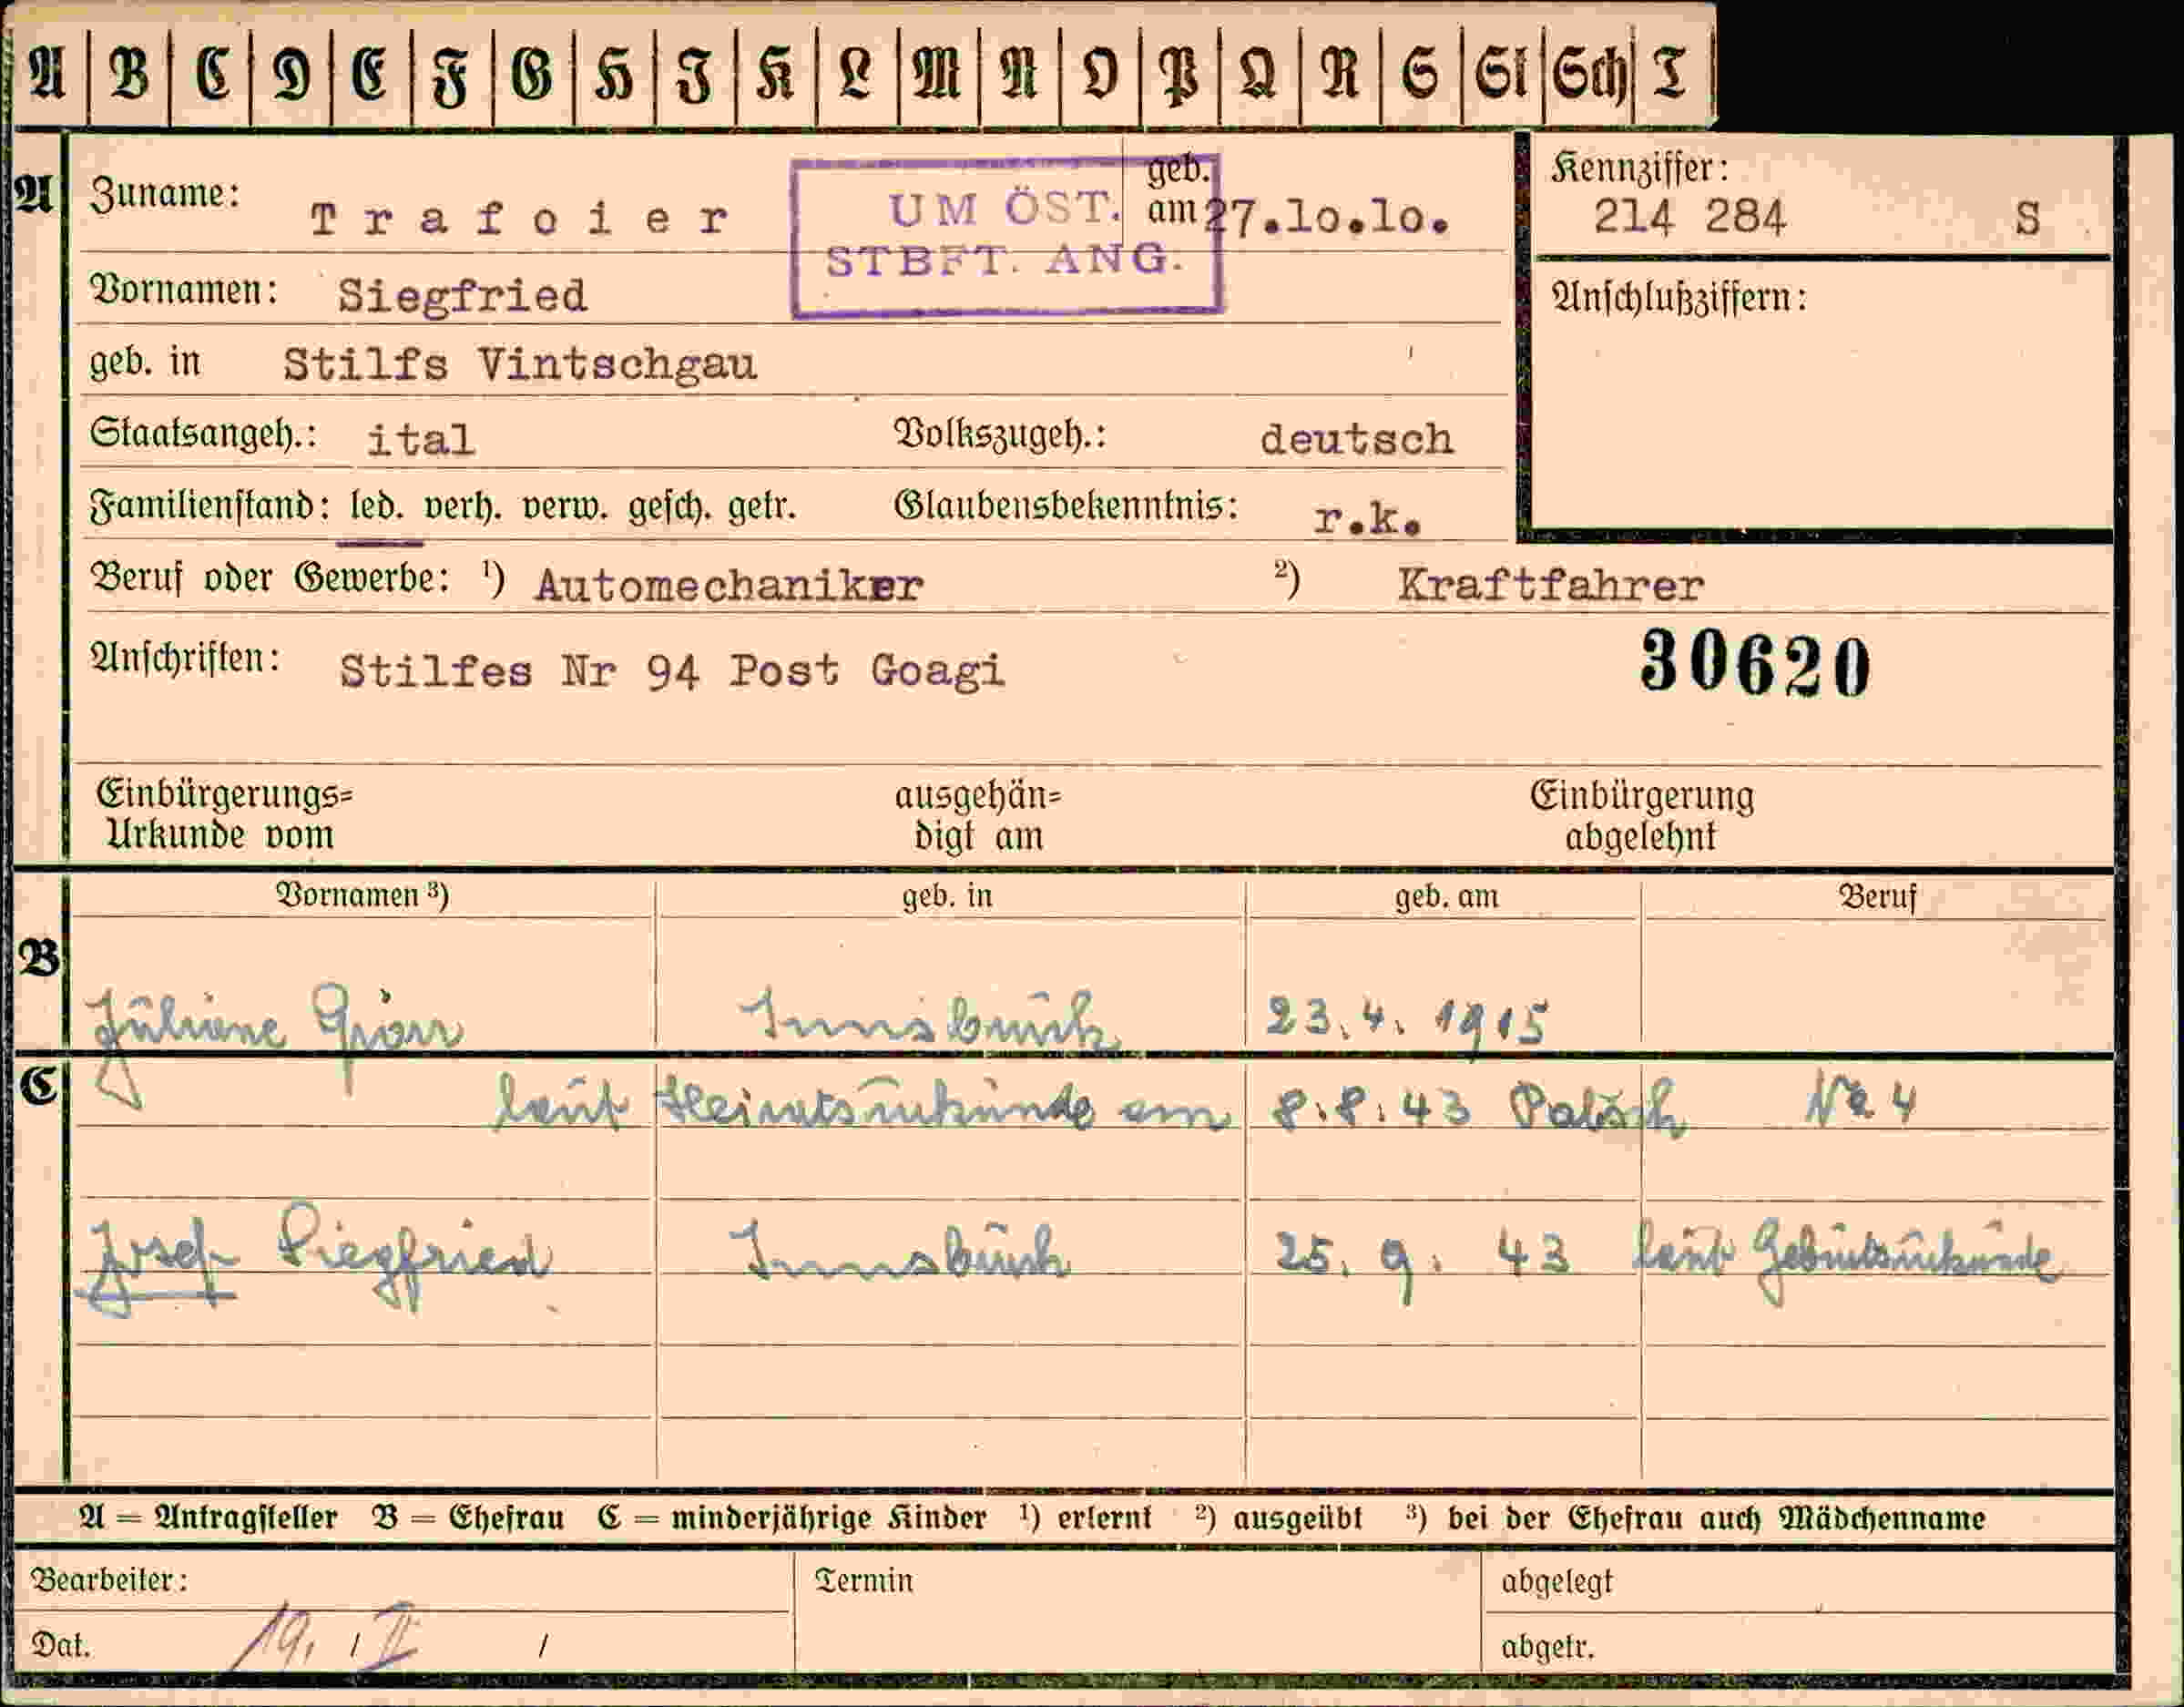 A B C D E F G H I K L M N O P Q R S St Sch T
A
Zuname: Trafoier
UM ÖST.
STBFT. ANG.
geb. am 27.lo.lo.
Kennziffer:
214 284 S
Vornamen: Siegfried
Anschlußziffern:
geb. in Stilfs Vintschgau
Staatsangeh.: ital Volkszugeh.: deutsch
Familienstand: led. verh. verw. gesch. getr. Glaubensbekenntnis: r.k.
Beruf oder Gewerbe: ¹) Automechaniker ²) Kraftfahrer
Anschriften: Stilfes Nr 94 Post Goagi
30620
Einbürgerungs= ausgehän= Einbürgerung
Urkunde vom digt am abgelehnt
Vornamen ³) geb. in geb. am Beruf
B
Juliane Innsbruck 23.4. 1915
C
laut Heiratsurkunde am 8.8.43 No 4
Josef Siegfried Innsbruck 25. 9. 43 laut Geburtsurkunde
A = Antragsteller B = Ehefrau C = minderjährige Kinder ¹) erlernt ²) ausgeübt ³) bei der Ehefrau auch Mädchenname
Bearbeiter: Termin abgelegt
Dat. 19. / II / abgetr.